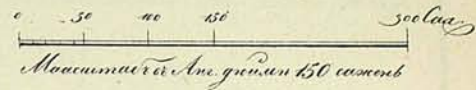 0 50 100 150 300 Саж.
Масштабъ въ Анг. дюймѣ 150 сажень